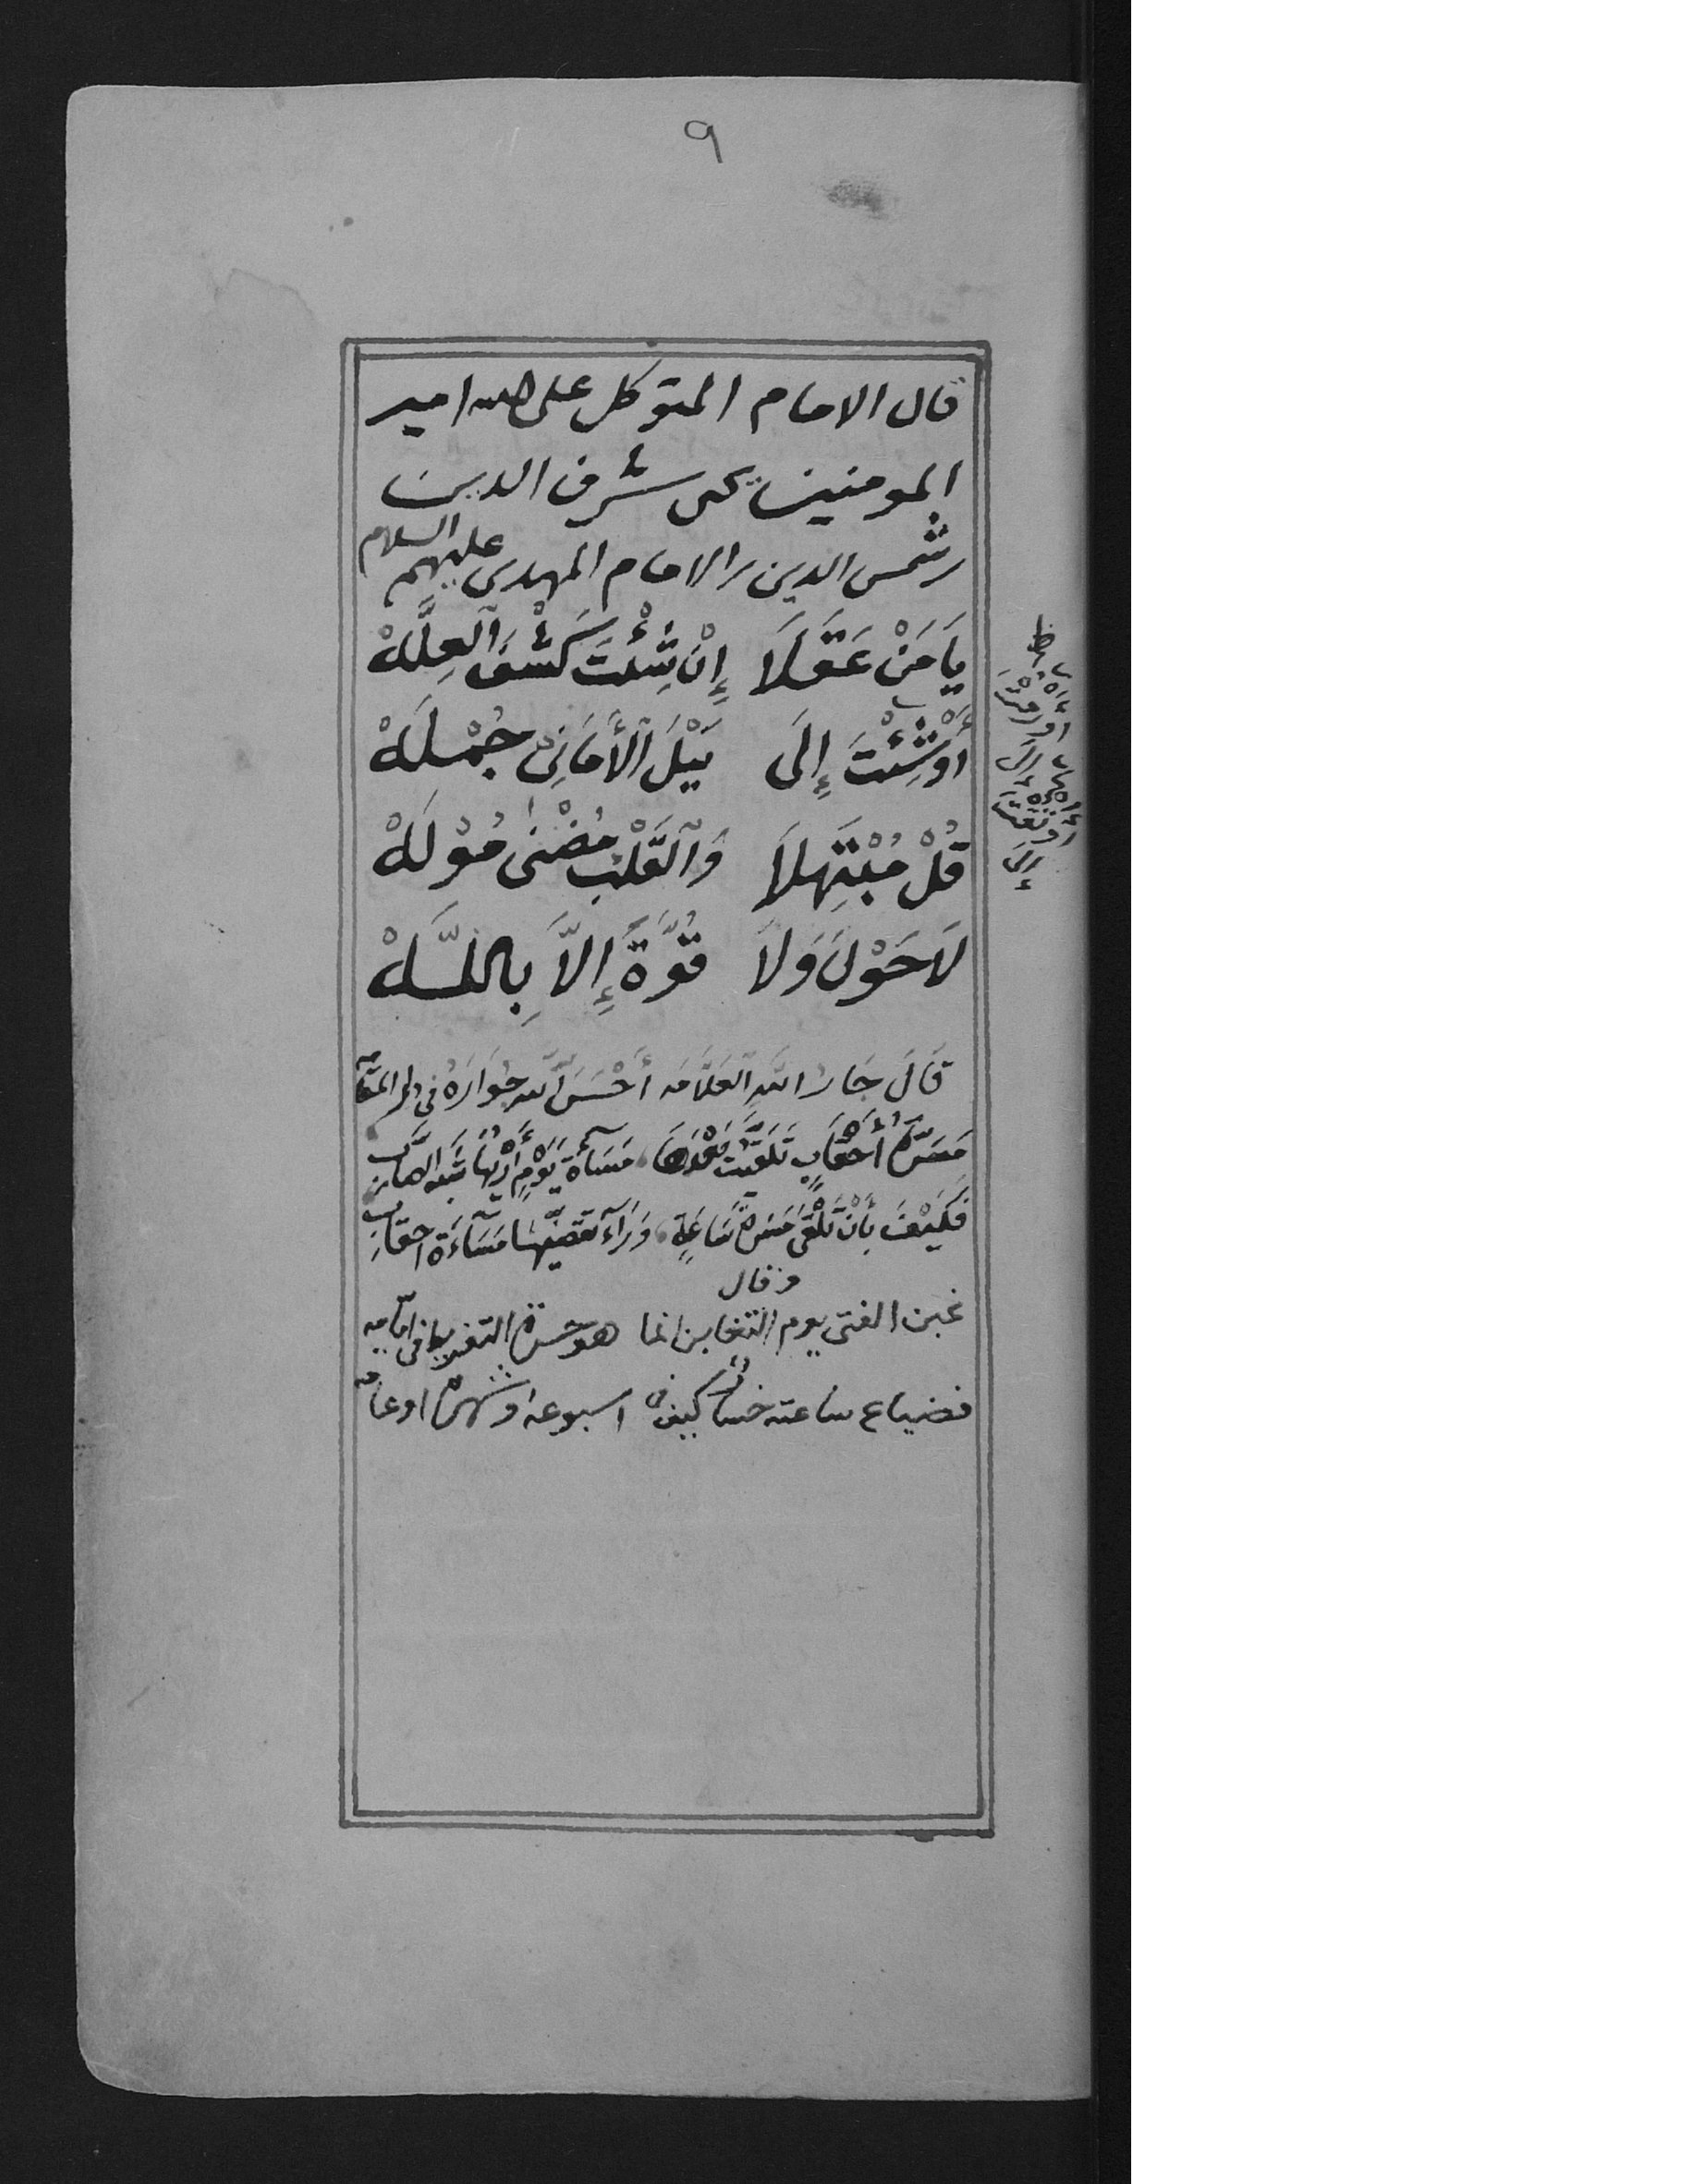 ٩
قال الامام المتوكل على الله امير
المومنين يحيى شرف الدين
بن شمس الدين بن الامام المهدي عليهم السلام
يَا مَنْ عَقَلَا إِنْ شِئْتَ كَشْفَ الْعِلَّهْ
أَوْ شِئْتَ إِلَى نَيْلَ الْأَمَانِي جُمْلَهْ
قُلْ مُبْتَهِلَا وَالْقَلْبِ مُضْنىٰ مُوْلَهْ
لَا حَوْلَ وَلَا قُوَّةَ إِلَّا بِاللَّهْ
قَالَ جَارُ اللهِ العَلَّامَه أَحْسَنَ اللهُ جِوَارَهُ في دار المقامه
مَسَرَّةُ أَحْقَابٍ تَلَقَّيْتَ بَعْدَهَا مَسَآءَةَ يَوْمٍ أَرْيُهَا شَبَهُ الصَّابِ
فَكَيْفَ بِأَنْ تَلْقَى مَسَرَّةَ سَاعَةٍ وَرَآءَ تَقَضِّيهَا مَسَآءَةُ احقابِ
وقال
غبن الفتى يوم التغابن انما هو حسرة التفريط في ايامه
فضياع ساعته خسار كيف اسبوعه او شهره او عامه
ظ
إلى
إلى